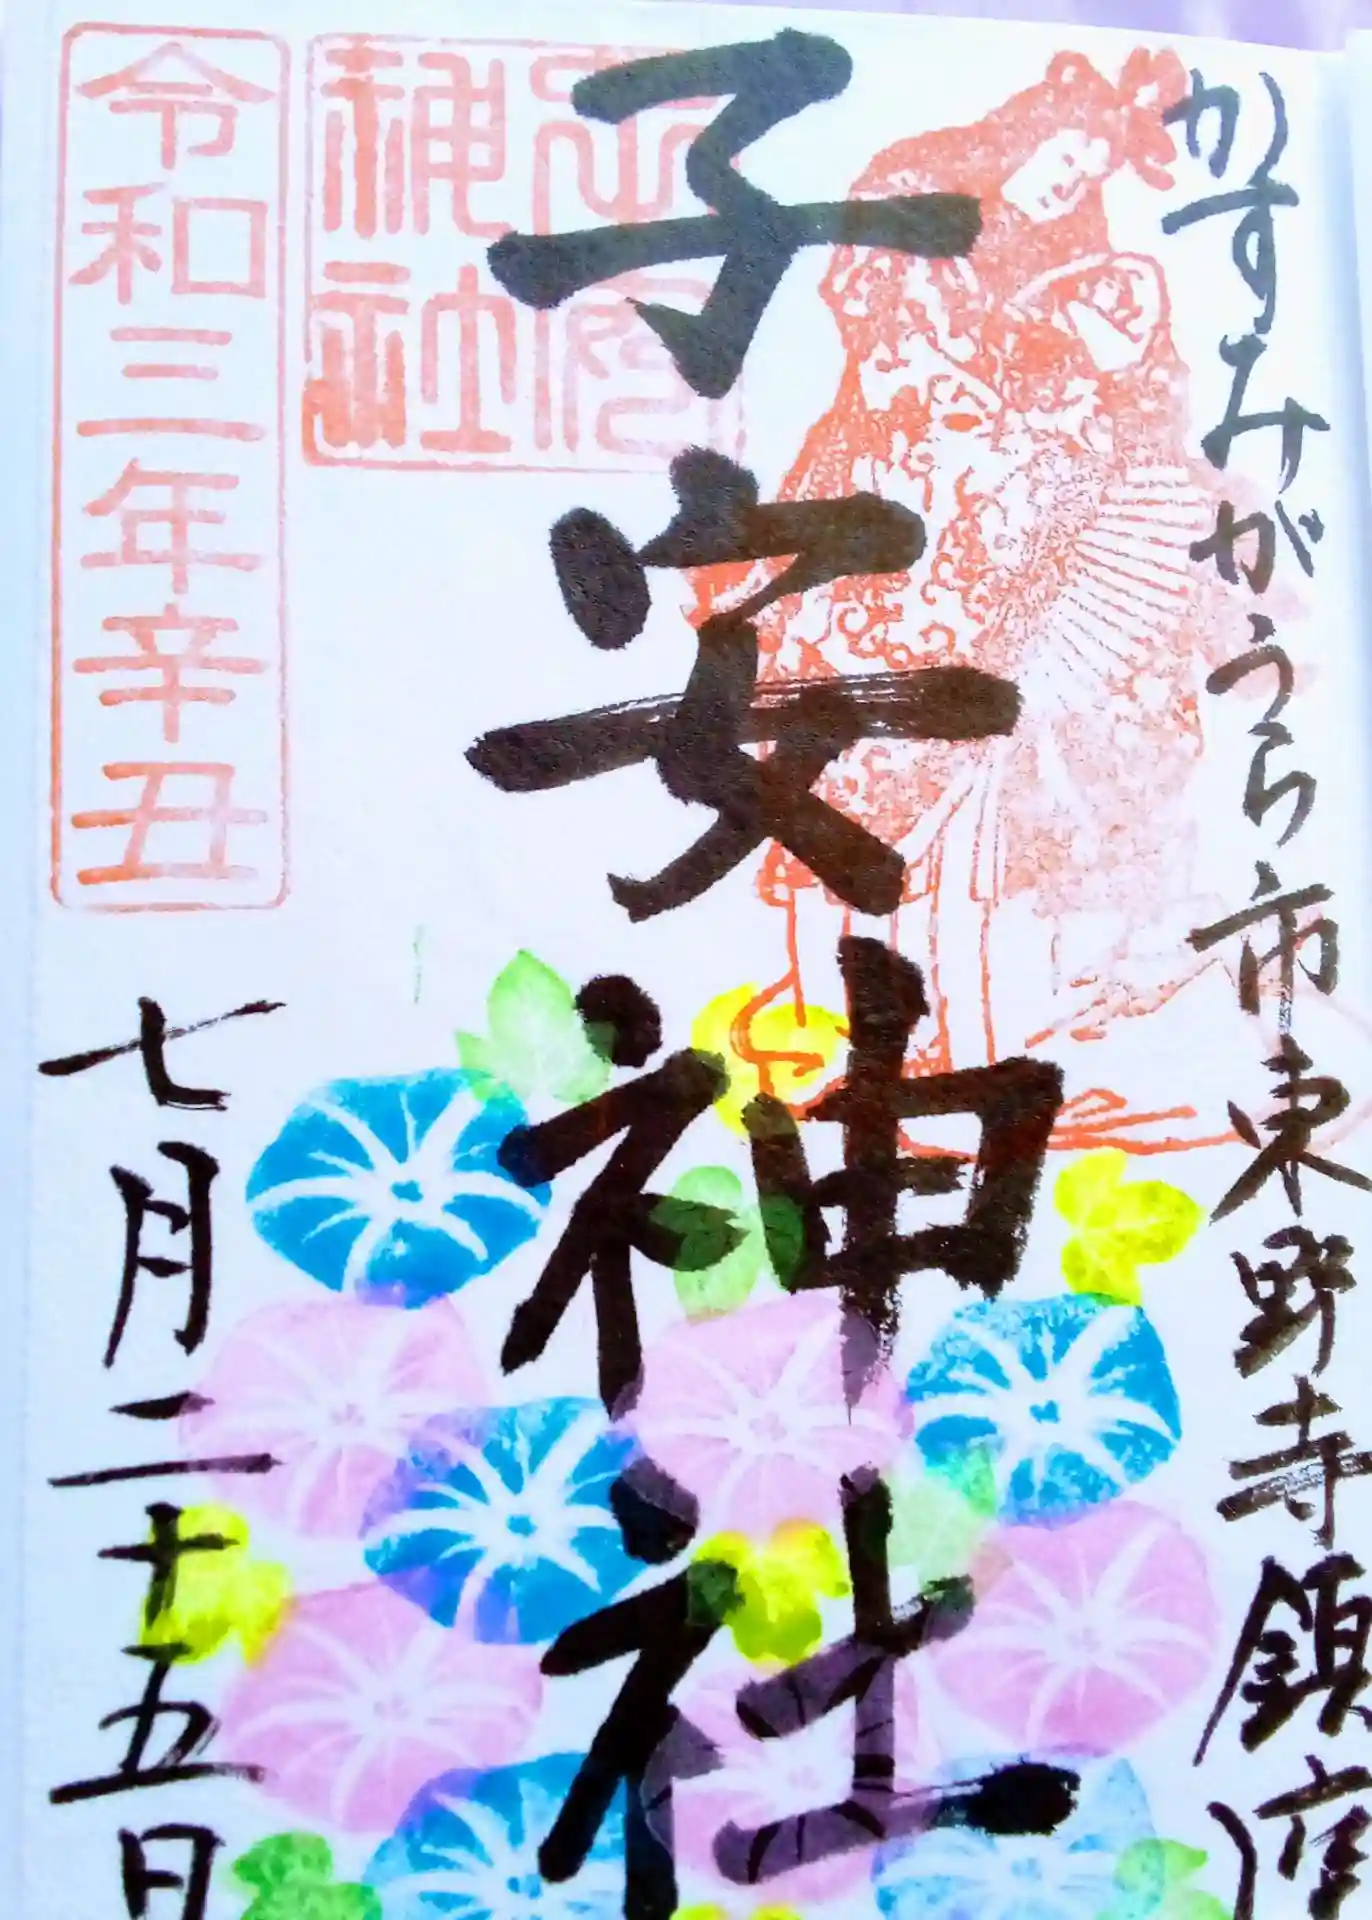 かすみがうら市東野寺鎮座
子安神社
子安
神社
令和三年辛丑
七月二十五日